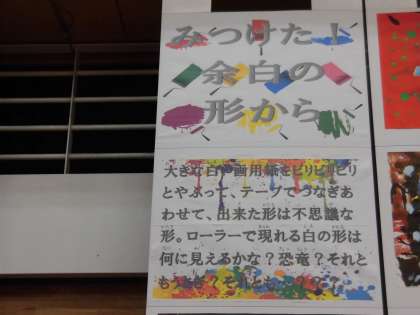 みつけた！
余白の
形から
大きな白い画用紙をビリビリビリ
とやぶって、テープでつなぎあ
わせて、出来た形は不思議な
形。ローラーで現れる白の形は
何に見えるかな？恐竜？それと
も
？それとも